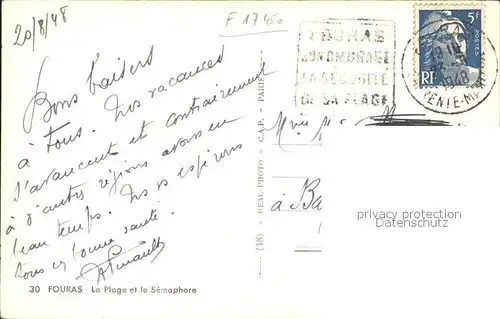 20/8/48
F 17450
FOURAS
SON OMBRAGE
LA SÉCURITÉ
DE SA PLAGE
5F
POSTES
RF
1948
Bons baisers
à tous. Nos vacances
s'avancent et contrairement
à d'autres régions avons un
beau temps. Nous espérons
tous en bonne santé.
à Ba
privacy protection
Datenschutz
(18) - REAL-PHOTO - C.A.P. - PARIS
30 FOURAS - La Plage et le Sémaphore